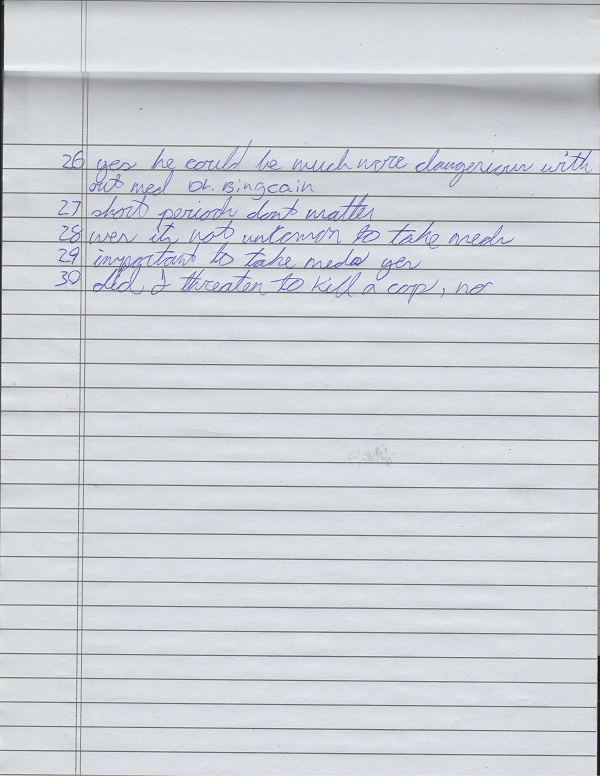 26 yes he could be much more dangerious with
out med Dr. Bingcain
27 short periods dont matter
28 wes its not unkomon to take meds
29 important to take meds yes
30 did I threaten to kill a cop, no